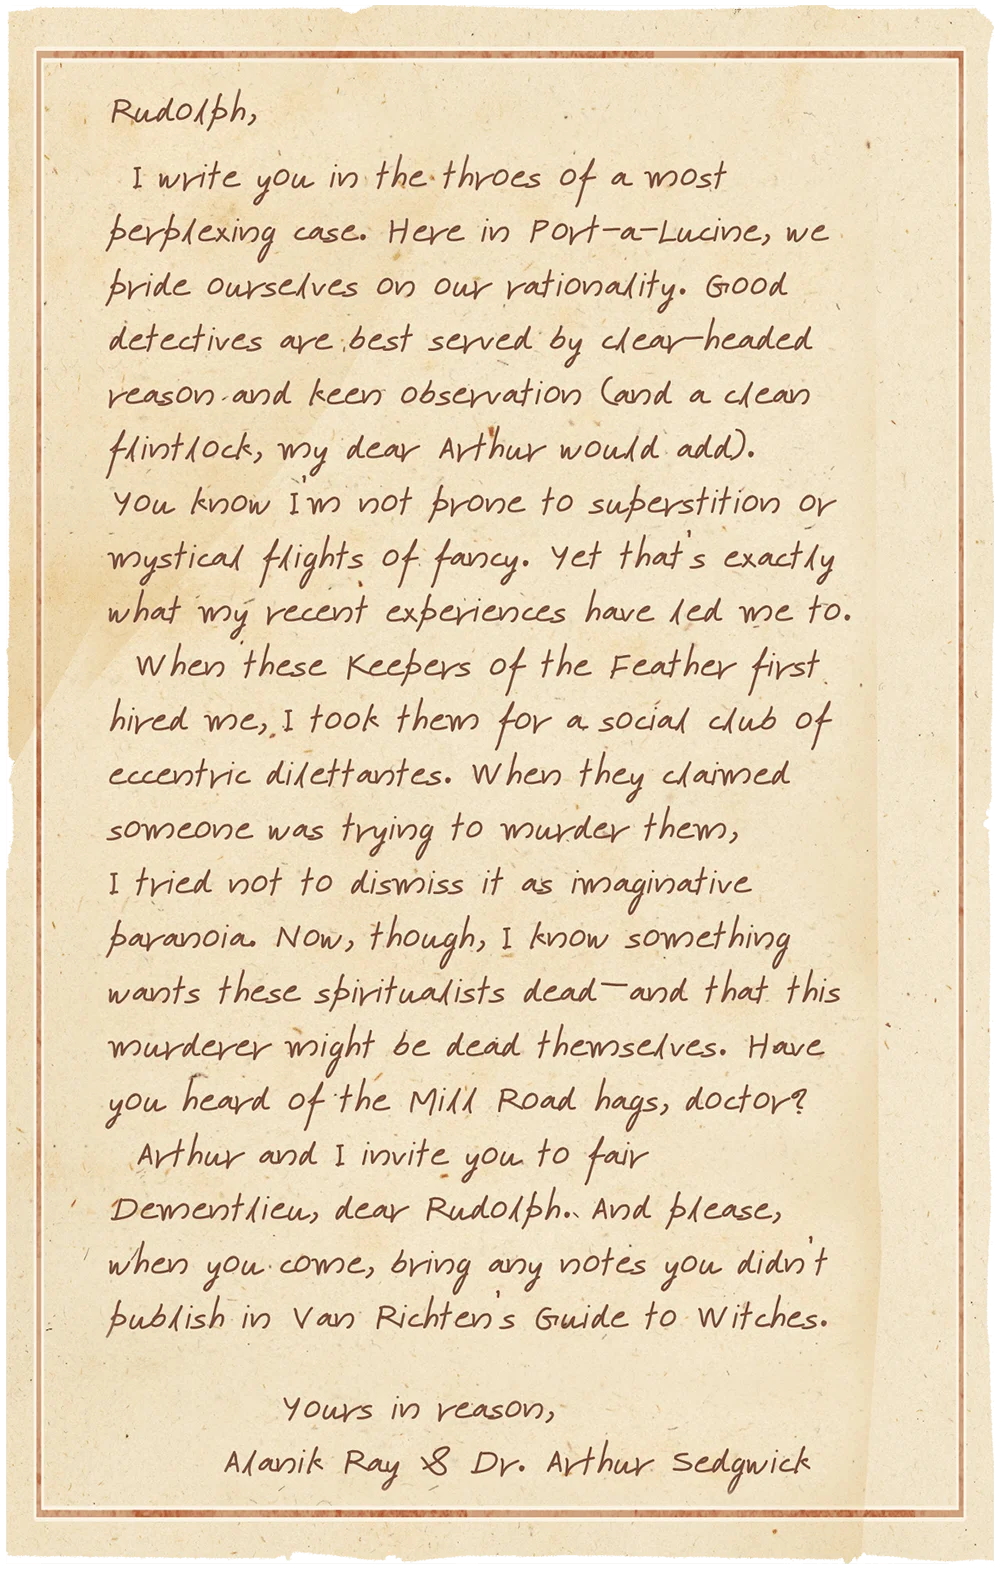 Rudolph,
I write you in the throes of a most
perplexing case. Here in Port-a-Lucine, we
pride ourselves on our rationality. Good
detectives are best served by clear-headed
reason and keen observation (and a clean
flintlock, my dear Arthur would add).
You know I'm not prone to superstition or
mystical flights of fancy. Yet that's exactly
what my recent experiences have led me to.
When these Keepers of the Feather first
hired me, I took them for a social club of
eccentric dilettantes. When they claimed
someone was trying to murder them,
I tried not to dismiss it as imaginative
paranoia. Now, though, I know something
wants these spiritualists dead—and that this
murderer might be dead themselves. Have
you heard of the Mill Road hags, doctor?
Arthur and I invite you to fair
Dementlieu, dear Rudolph. And please,
when you come, bring any notes you didn't
publish in Van Richten's Guide to Witches.
Yours in reason,
Alanik Ray & Dr. Arthur Sedgwick